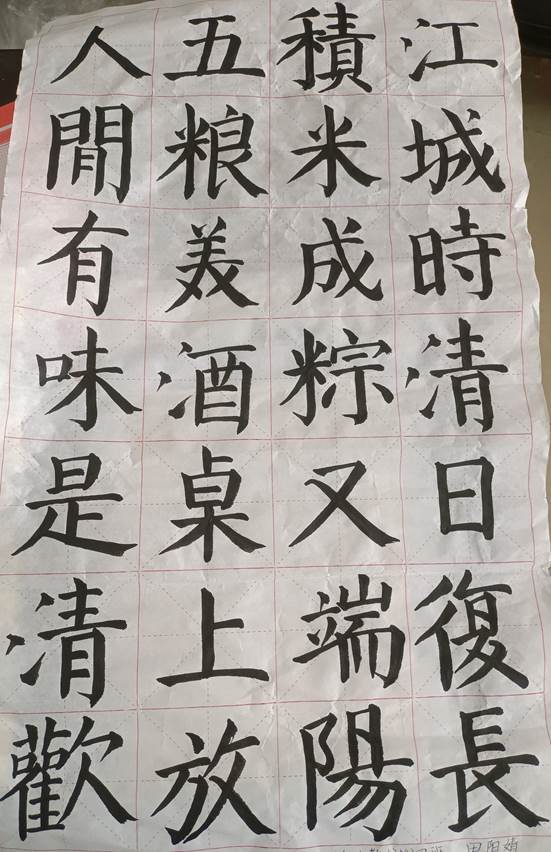 江城時清日復長
積米成粽又端陽
五粮美酒桌上放
人間有味是清歡